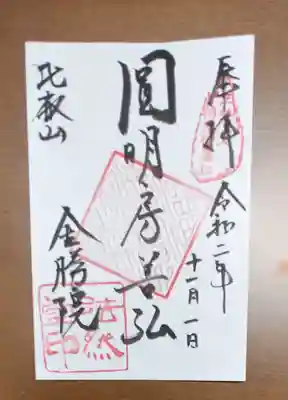 奉拝
令和二年
十一月一日
圓明房善弘
比叡山
金勝院
法然